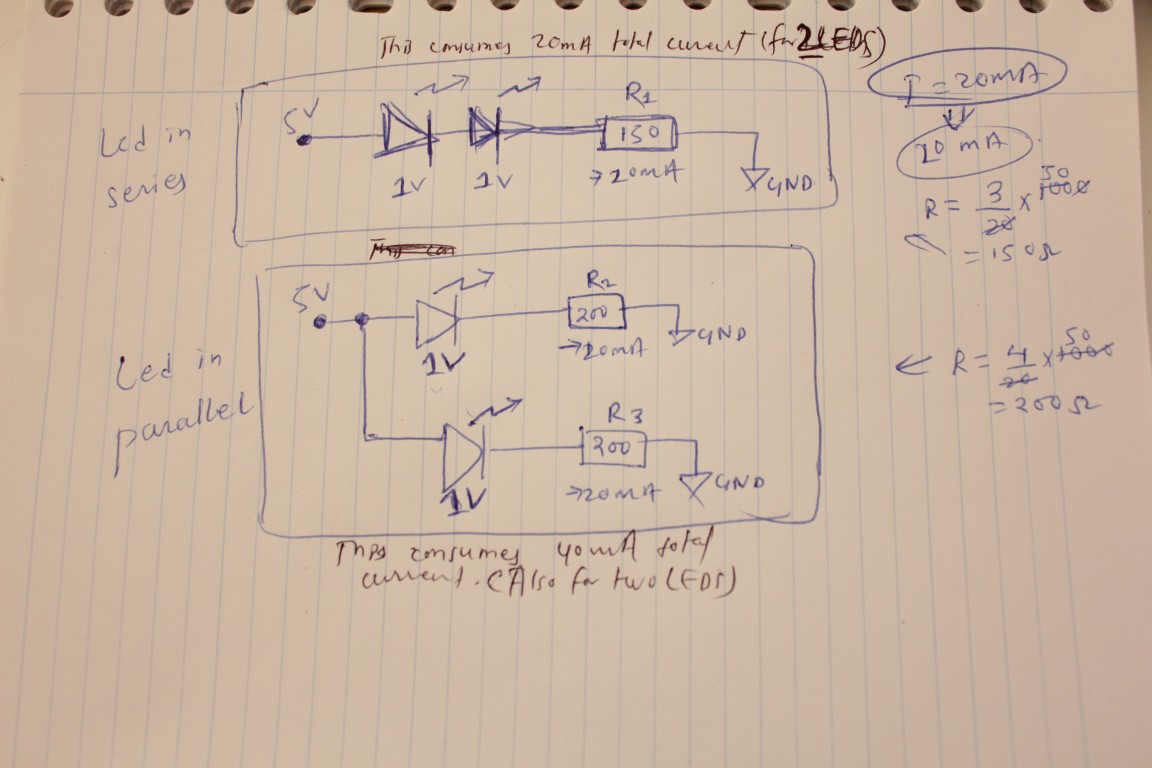 This consumes 20mA total current (for 2LEDS)
I = 20mA
20 mA
Led in
series
5V
1V
1V
R1
150
→20mA
GND
R = 3/20 x 1000 50
= 150Ω
Led in
parallel
5V
1V
R2
200
→20mA
GND
R = 4/20 x 1000 50
= 200Ω
1V
R3
200
→20mA
GND
This consumes 40mA total
current. (Also for two LEDS)